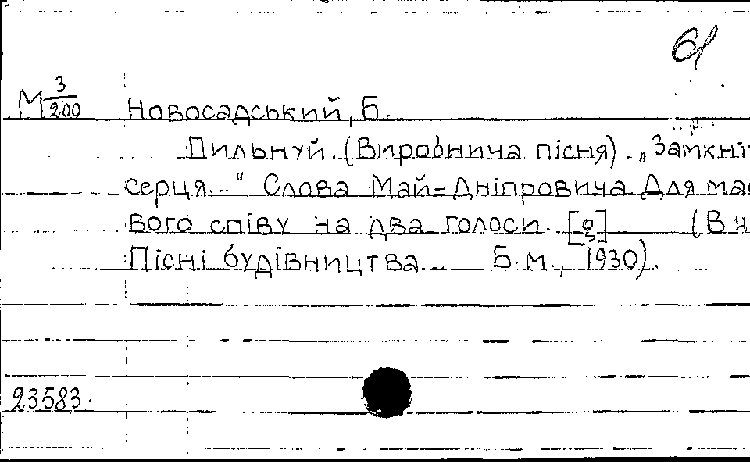 61
М 3/200 Новосадський, Б.
Пильнуй. (Виробнича пісня). „Замкніт
серця..." Слова Май=Дніпровича Для мас
вого співу на два голоси. [g] (В н
Пісні будівництва... Б.м., 1930).
23583.